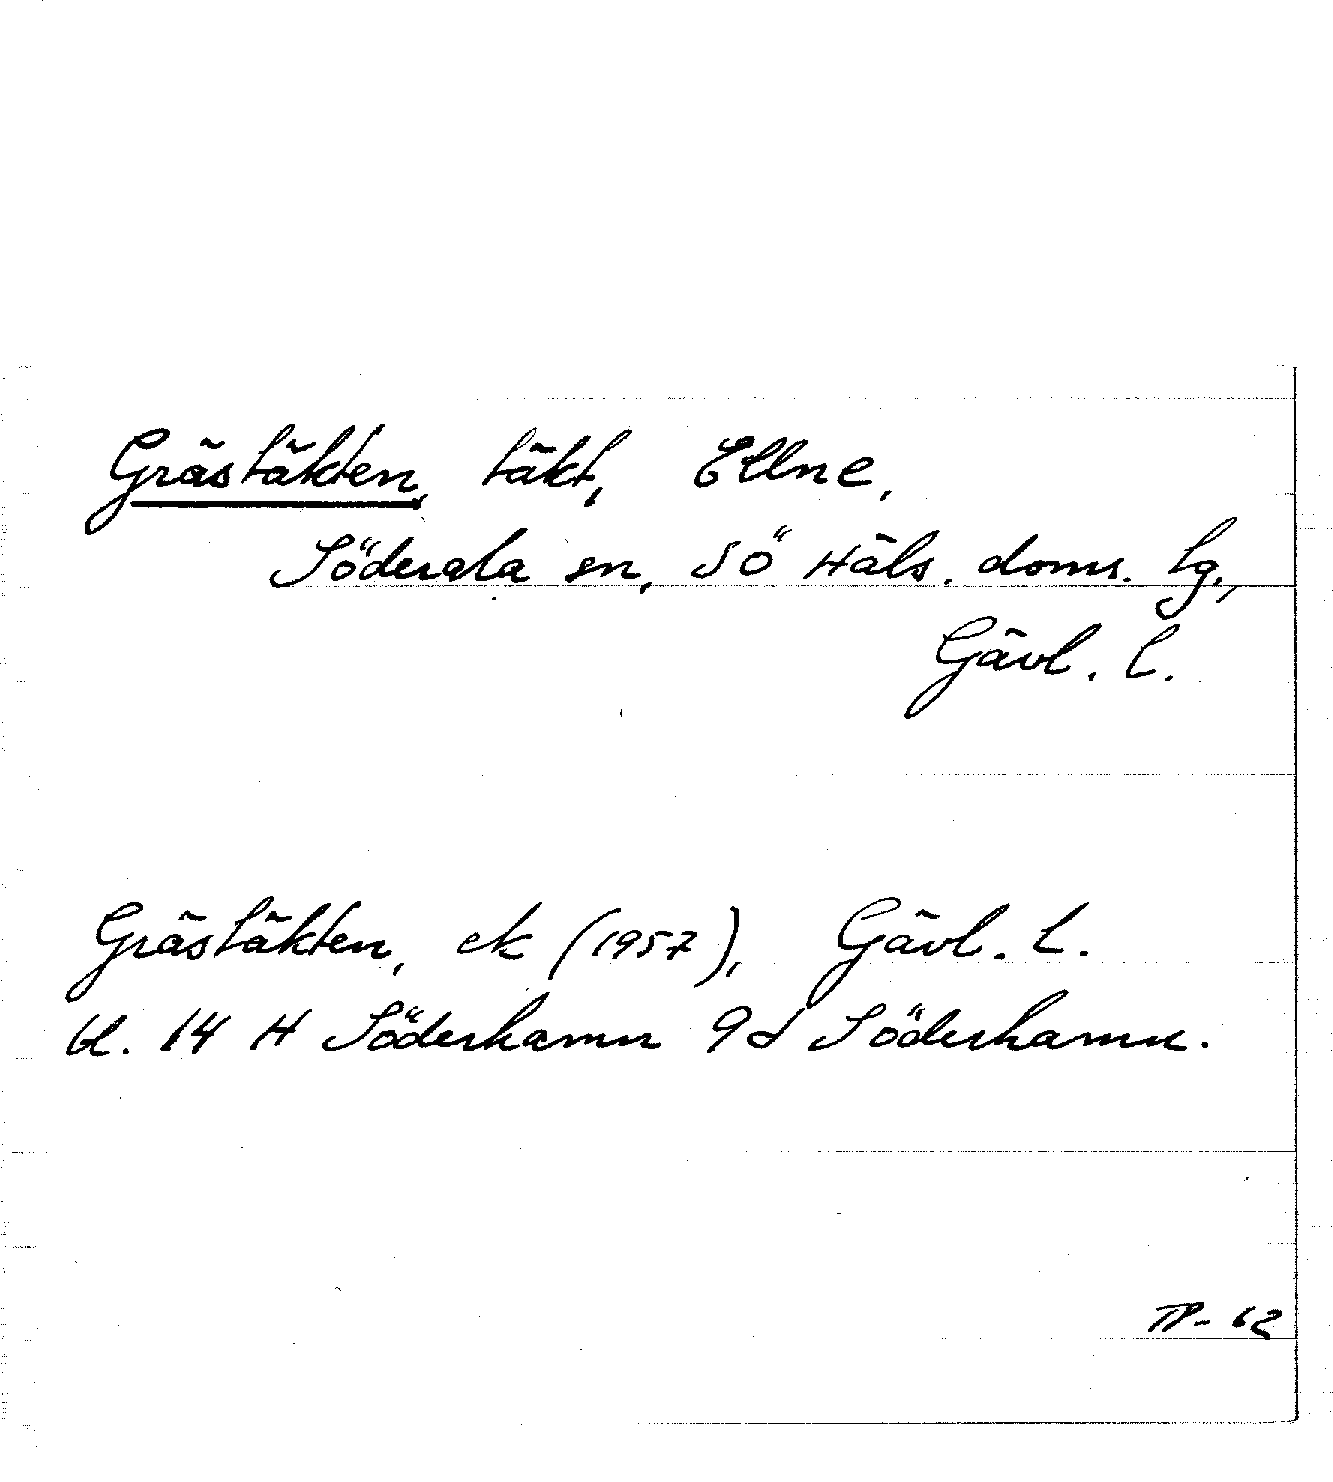 Grästäkten, täkt, Ellne,
Söderala sn, SÖ Häls. doms. lg.,
Gävl. l.
Grästäkten, ek (1957), Gävl. l.
bl. 14 H Söderhamn 9d Söderhamn.
TP-62